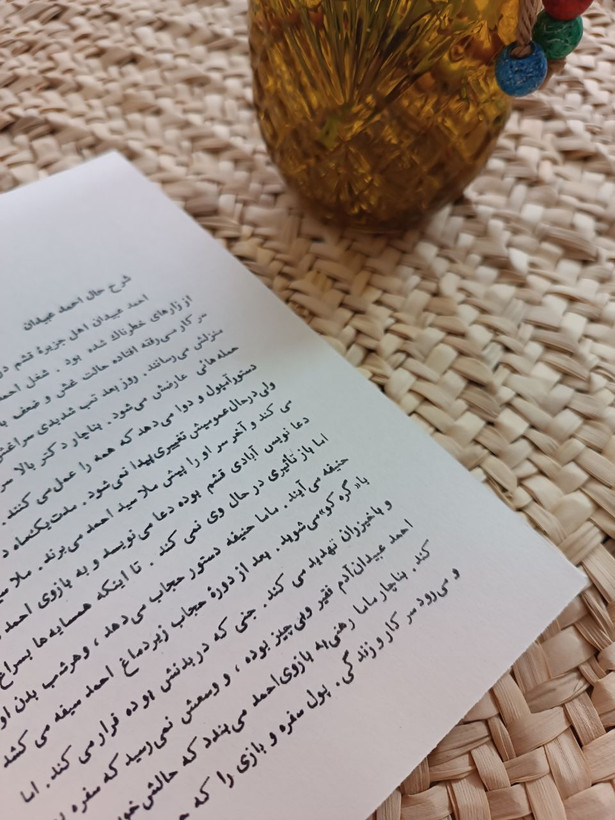 شرح حال احمد عبیدان
احمد عبیدان اهل جزیرهٔ قشم
از زارهای خطرناک شده بود . شغل
سر کار می‌رفته افتاده حالت غش و ضعف
منزلش می‌رسانند. روز بعد تب شدیدی
حمله‌هائی عارضش می‌شود . بناچار دکتر بالا
دستور آمپول و دوا می‌دهد که همه را عمل می کنند .
ولی در حال عمومیش تغییری پیدا نمی‌شود . مدت یکماه
می کند و آخر سر او را پیش ملا سید احمد می‌برند . ملا
دعا نویس آزادی قشم بوده دعا می‌نویسد و به بازوی احمد
اما باز تأثیری در حال وی نمی کند . تا اینکه همسایه‌ها بسراغ
حنیفه می آیند . ماما حنیفه دستور حجاب می‌دهد ، و هر شب بدن او
با« گره کو»می‌شوید . بعد از دورهٔ حجاب زیر دماغ احمد سیفه می کشد
و با خیزران تهدید می کند. جنی که در بدنش بوده فرار می کند. اما
احمد عبیدان آدم فقیر وبی‌چیز بوده ، و وسعش نمی‌رسید که سفره
کند . بناچار ماما رهنی به بازوی احمد می‌بندد که حالش
و می‌رود سر کار و زندگی . پول سفره و بازی را که